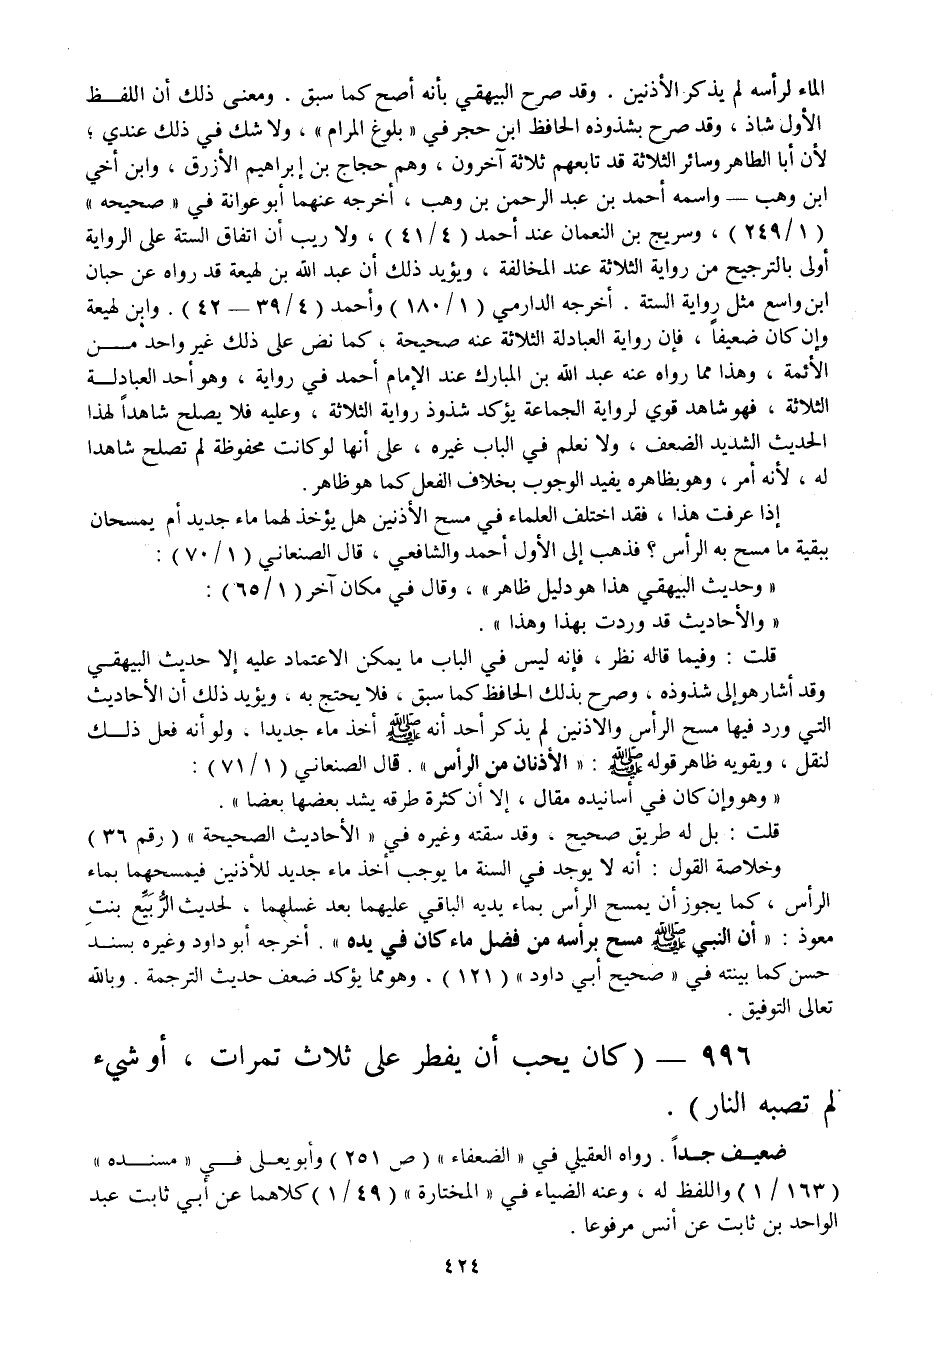 الماء لرأسه لم يذكر الأذنين . وقد صرح البيهقي بأنه أصح كما سبق . ومعنى ذلك أن اللفــظ
الأول شاذ ، وقد صرح بشذوذه الحافظ ابن حجر في « بلوغ المرام » ، ولا شك في ذلك عندي ؛
لأن أبا الطاهر وسائر الثلاثة قد تابعهم ثلاثة آخرون ، وهم حجاج بن إبراهيم الأزرق ، وابن أخي
ابن وهب — واسمه أحمد بن عبد الرحمن بن وهب ، أخرجه عنهما أبو عوانة في « صحيحه »
( ١/ ٢٤٩ ) ، وسريج بن النعمان عند أحمد ( ٤/ ٤١ ) ، ولا ريب أن اتفاق الستة على الرواية
أولى بالترجيح من رواية الثلاثة عند المخالفة ، ويؤيد ذلك أن عبد الله بن لهيعة قد رواه عن حبان
ابن واسع مثل رواية الستة . أخرجه الدارمي ( ١/ ١٨٠ ) وأحمد ( ٤/ ٣٩ — ٤٢ ) . وابن لهيعة
وإن كان ضعيفاً ، فإن رواية العبادلة الثلاثة عنه صحيحة ، كما نص على ذلك غير واحد مــن
الأئمة ، وهذا مما رواه عنه عبد الله بن المبارك عند الإمام أحمد في رواية ، وهو أحد العبادلــة
الثلاثة ، فهو شاهد قوي لرواية الجماعة يؤكد شذوذ رواية الثلاثة ، وعليه فلا يصلح شاهداً لهذا
الحديث الشديد الضعف ، ولا نعلم في الباب غيره ، على أنها لو كانت محفوظة لم تصلح شاهدا
له ، لأنه أمر ، وهو بظاهره يفيد الوجوب بخلاف الفعل كما هو ظاهر .
إذا عرفت هذا ، فقد اختلف العلماء في مسح الأذنين هل يؤخذ لهما ماء جديد أم يمسحان
ببقية ما مسح به الرأس ؟ فذهب إلى الأول أحمد والشافعي ، قال الصنعاني ( ١/ ٧٠ ) :
« وحديث البيهقي هذا هو دليل ظاهر » ، وقال في مكان آخر ( ١/ ٦٥ ) :
« والأحاديث قد وردت بهذا وهذا » .
قلت : وفيما قاله نظر ، فإنه ليس في الباب ما يمكن الاعتماد عليه إلا حديث البيهقــي
وقد أشار هو إلى شذوذه ، وصرح بذلك الحافظ كما سبق ، فلا يحتج به ، ويؤيد ذلك أن الأحاديث
التي ورد فيها مسح الرأس والاذنين لم يذكر أحد أنه ﷺ أخذ ماء جديدا ، ولو أنه فعل ذلــك
لنقل ، ويقويه ظاهر قوله ﷺ : « الأذنان من الرأس » . قال الصنعاني ( ١/ ٧١ ) :
« وهو وإن كان في أسانيده مقال ، إلا أن كثرة طرقه يشد بعضها بعضا » .
قلت : بل له طريق صحيح ، وقد سقته وغيره في « الأحاديث الصحيحة » ( رقم ٣٦ )
وخلاصة القول : أنه لا يوجد في السنة ما يوجب أخذ ماء جديد للأذنين فيمسحهما بماء
الرأس ، كما يجوز أن يمسح الرأس بماء يديه الباقي عليهما بعد غسلهما ، لحديث الرُّبَيِّع بنتِ
معوذ : « أن النبي ﷺ مسح برأسه من فضل ماء كان في يده » . أخرجه أبو داود وغيره بسنــد
حسن كما بينته في « صحيح أبي داود » ( ١٢١ ) . وهو مما يؤكد ضعف حديث الترجمة . وبالله
تعالى التوفيق .
٩٩٦ — ( كان يحب أن يفطر على ثلاث تمرات ، أو شيء
لم تصبه النار ) .
ضعيــف جــداً . رواه العقيلي في « الضعفاء » ( ص ٢٥١ ) وأبو يعــلى فــي « مسنــده »
( ١٦٣ / ١ ) واللفظ له ، وعنه الضياء في « المختارة » ( ٤٩ / ١ ) كلاهما عن أبي ثابت عبد
الواحد بن ثابت عن أنس مرفوعا .
٤٢٤